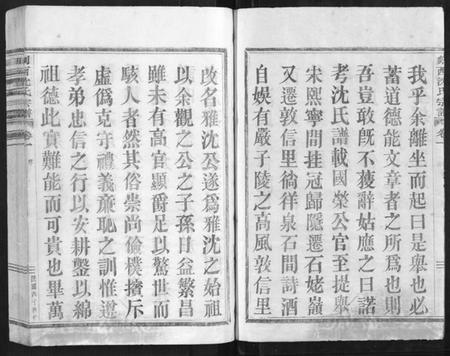 我乎余離坐而起曰是舉也必
蓄道德能文章者之所為也則
吾豈敢旣不獲辭姑應之曰諾
考沈氏譜載國榮公官至提舉
宋熙寧間挂冠歸隱遷石姥嶺
又遷敦信里徜徉泉石間詩酒
自娛有嚴子陵之高風敦信里
改名雅沈公遂為雅沈之始祖
以余觀之公之子孫日益繁昌
雖未有高官顯爵足以驚世而
駭人者然其俗崇尚儉樸擯斥
虛偽克守禮義廉恥之訓惟遵
孝弟忠信之行以安耕鑿以綿
祖德此實難能而可貴也畢萬